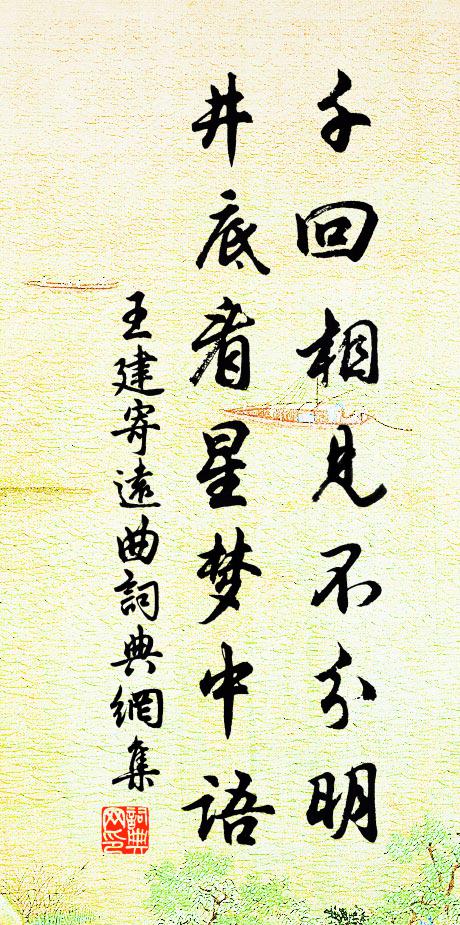 千回相見不分明
井底看星梦中語
王建寄遠曲詞典網集
詞典
网印